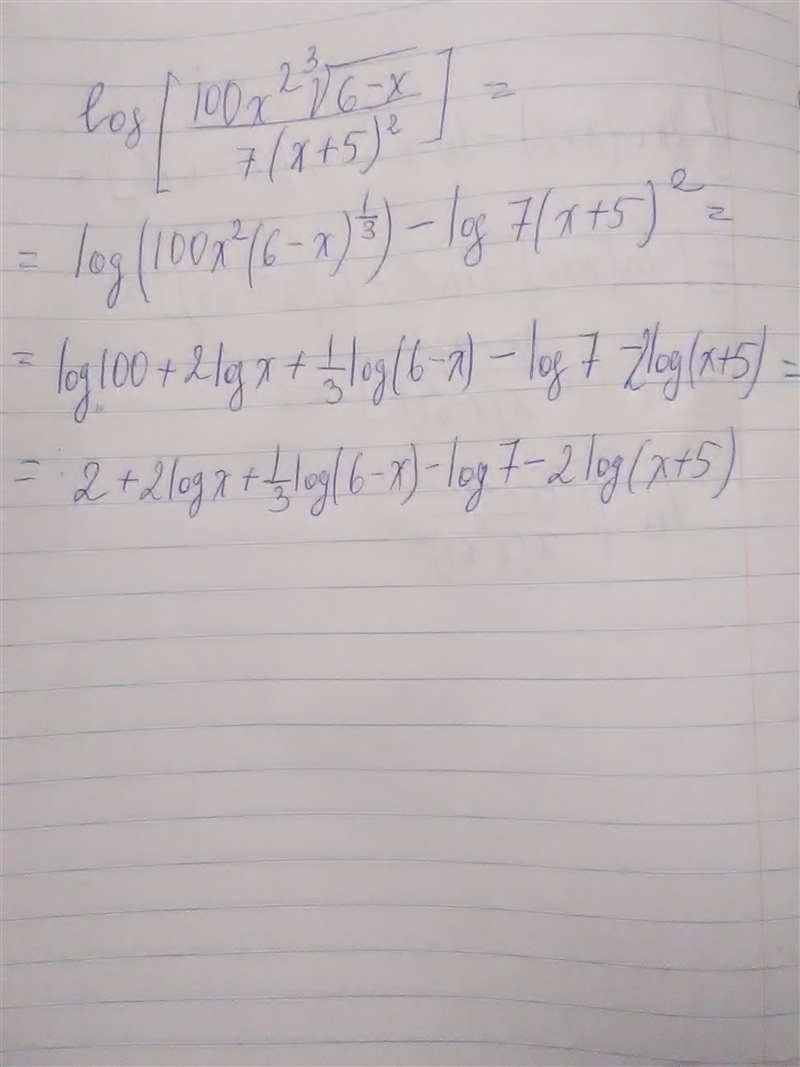 log[100x²∛(6-x) / 7(x+5)²] =
= log(100x²(6-x)^(1/3)) - log 7(x+5)² =
= log100 + 2logx + 1/3 log(6-x) - log 7 - 2log(x+5) =
= 2 + 2logx + 1/3 log(6-x) - log7 - 2log(x+5)